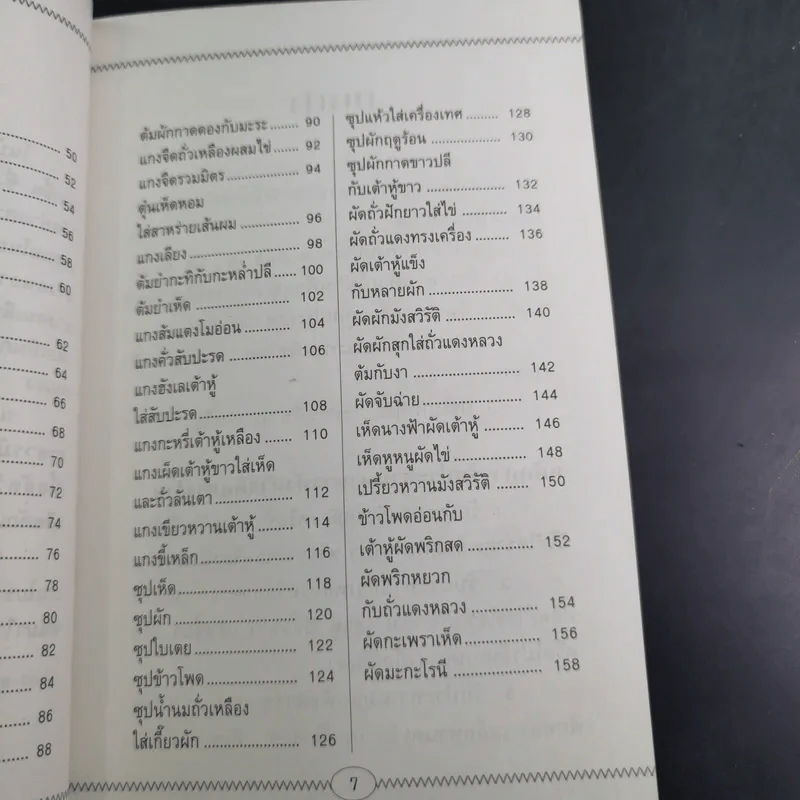 50
52
54
56
58
60
62
64
66
68
70
72
74
76
78
80
82
84
86
88
ต้มผักกาดดองกับมะระ ........ 90
แกงจืดถั่วเหลืองผสมไข่ ....... 92
แกงจืดรวมมิตร ................. 94
ตุ๋นเห็ดหอม
ใส่สาหร่ายเส้นผม ............... 96
แกงเลียง ........................ 98
ต้มยำกะทิกับกะหล่ำปลี ...... 100
ต้มยำเห็ด ...................... 102
แกงส้มแตงโมอ่อน ............. 104
แกงคั่วสับปะรด ................ 106
แกงฮังเลเต้าหู้
ใส่สับปะรด ..................... 108
แกงกะหรี่เต้าหู้เหลือง ......... 110
แกงเผ็ดเต้าหู้ขาวใส่เห็ด
และถั่วลันเตา ................... 112
แกงเขียวหวานเต้าหู้ ........... 114
แกงขี้เหล็ก ..................... 116
ซุปเห็ด .......................... 118
ซุปผัก ........................... 120
ซุปใบเตย ....................... 122
ซุปข้าวโพด ..................... 124
ซุปน้ำนมถั่วเหลือง
ใส่เกี๊ยวผัก ...................... 126
ซุปแห้วใส่เครื่องเทศ ......... 128
ซุปผักฤดูร้อน ................. 130
ซุปผักกาดขาวปลี
กับเต้าหู้ขาว ................... 132
ผัดถั่วฝักยาวใส่ไข่ ............ 134
ผัดถั่วแดงทรงเครื่อง ......... 136
ผัดเต้าหู้แข็ง
กับหลายผัก .................... 138
ผัดผักมังสวิรัติ ................ 140
ผัดผักสุกใส่ถั่วแดงหลวง
ต้มกับงา ........................ 142
ผัดจับฉ่าย ...................... 144
เห็ดนางฟ้าผัดเต้าหู้ .......... 146
เห็ดหูหนูผัดไข่ ................ 148
เปรี้ยวหวานมังสวิรัติ ........ 150
ข้าวโพดอ่อนกับ
เต้าหู้ผัดพริกสด ............... 152
ผัดพริกหยวก
กับถั่วแดงหลวง ............... 154
ผัดกะเพราเห็ด ................. 156
ผัดมะกะโรนี .................... 158
7